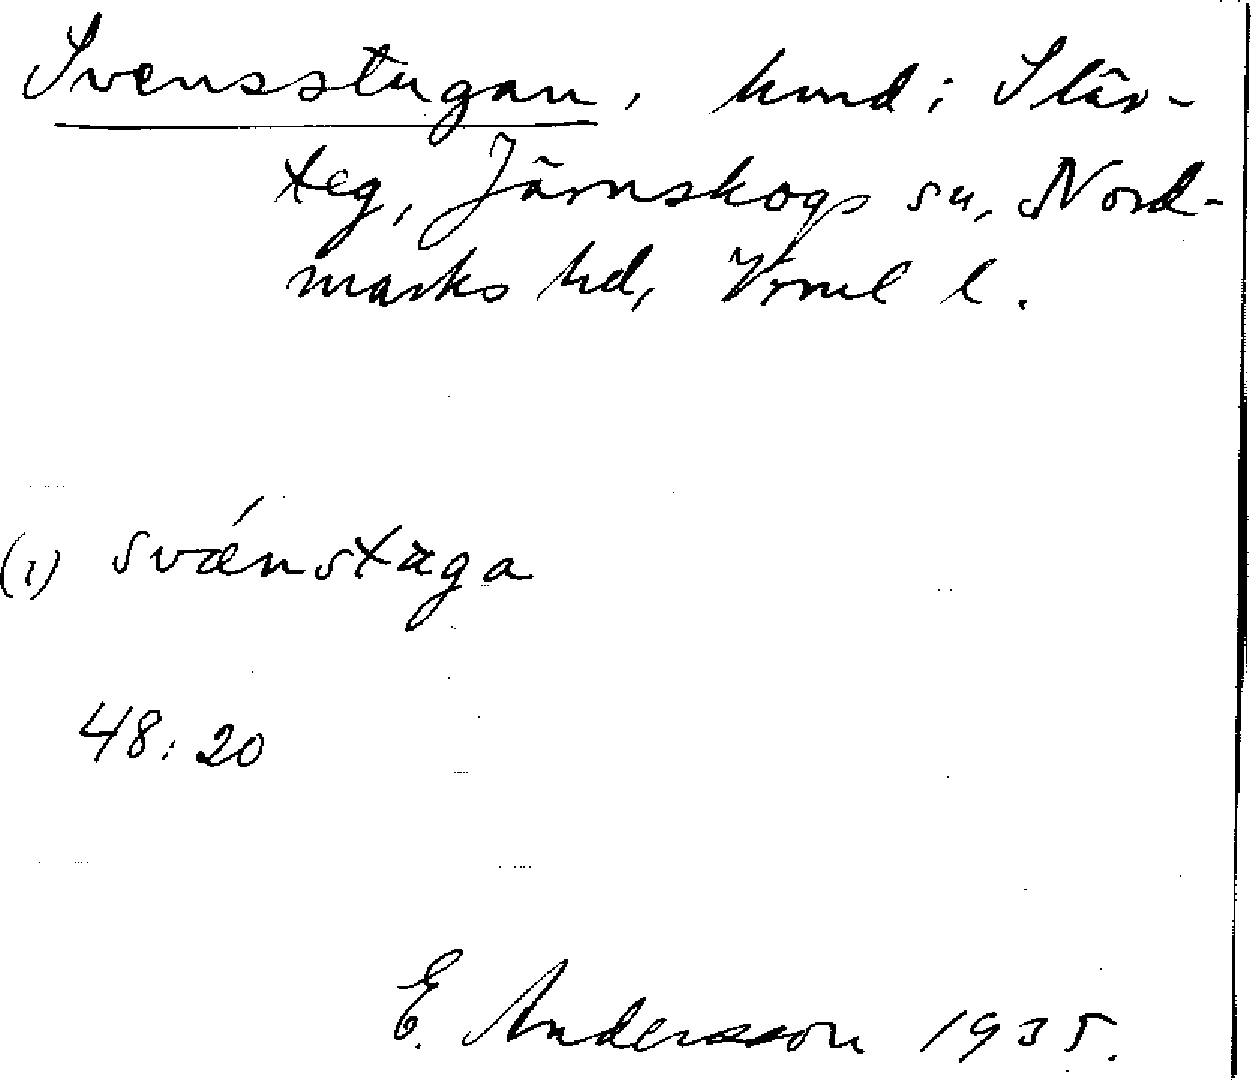 Svensstugan, hmd i Slär-
teg, Järnskogs sn, Nord-
marks hd, Vrml l.
(1) svǽnstuga
48:20
E. Andersson 1935.